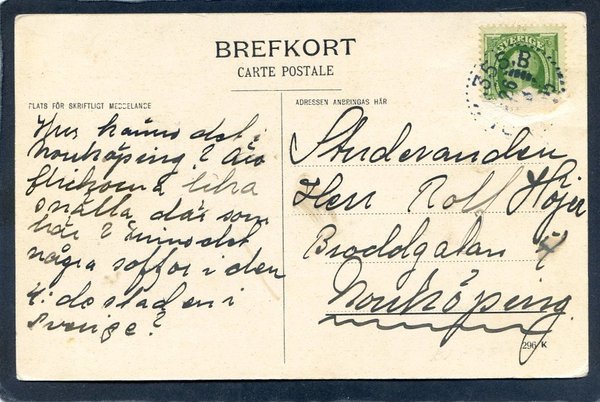 BREFKORT
CARTE POSTALE
SVERIGE
PLATS FÖR SKRIFTLIGT MEDDELANDE
ADRESSEN ANBRINGAS HÄR
Hur känns det i
Norrköping? Äro
flickorna lika
snälla där som
här? Finns det
några soffor i den
4:de staden i
Sverige?
Studeranden
Herr Rolf Höjer
Broddgatan 4
Norrköping.
296 K